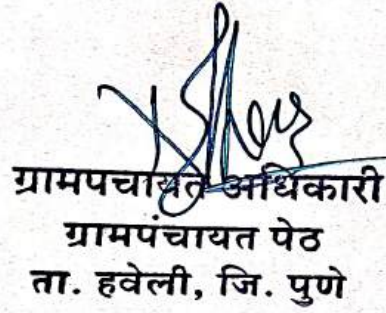 ग्रामपचायत अधिकारी
ग्रामपंचायत पेठ
ता. हवेली, जि. पुणे